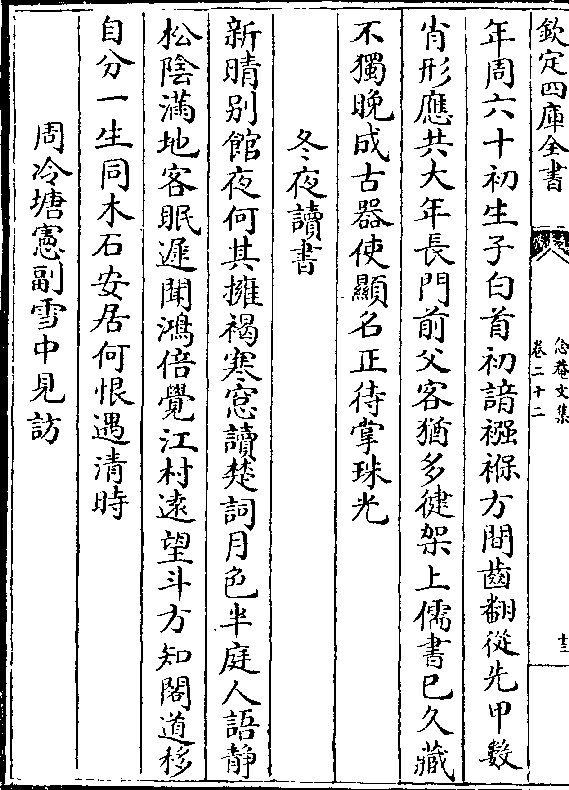 欽定四庫全書
念菴文集
卷二十二
十三
年周六十初生子白首初諳襁褓方閱齒翻從先甲數
肖形應共大年長門前父客猶多健架上儒書已久藏
不獨晚成古器使顯名正待掌珠光
冬夜讀書
新晴别館夜何其擁褐寒窓讀楚詞月色半庭人語靜
松陰滿地客眠遲聞鴻倍覺江村遠望斗方知閣道移
自分一生同木石安居何恨遇清時
周冷塘憲副雪中見訪